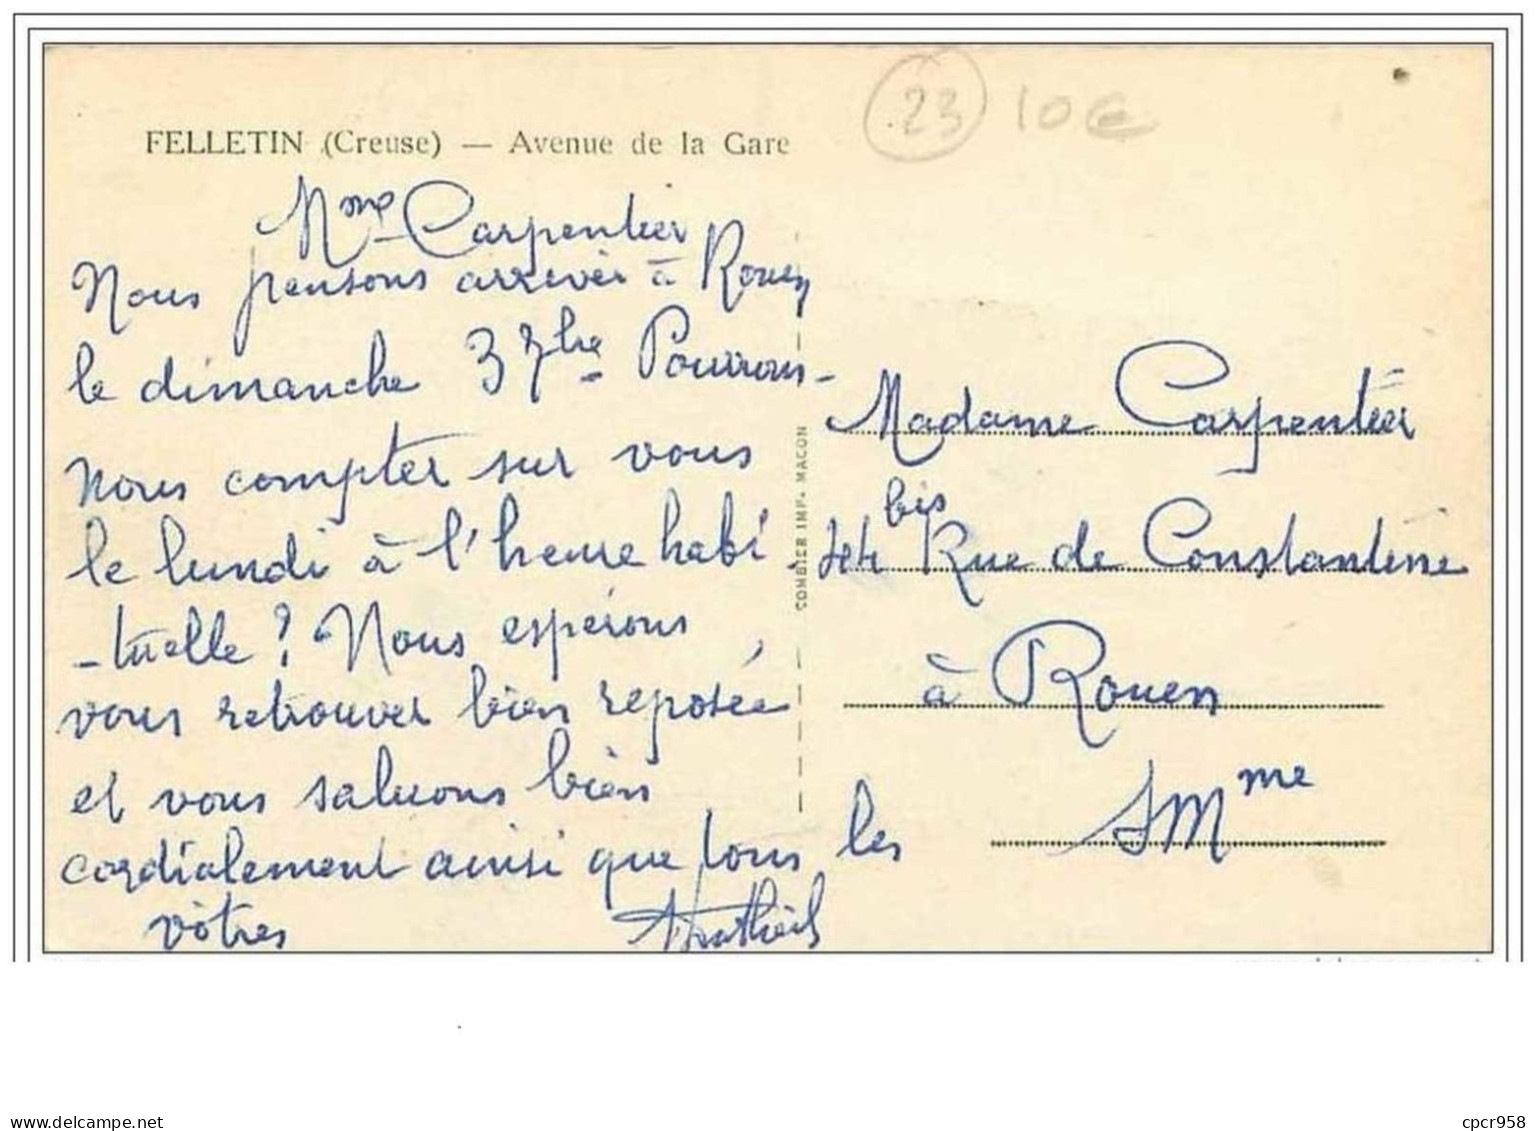 FELLETIN (Creuse) — Avenue de la Gare
23 10€
Mme Carpentier
Nous pensons arriver à Rouen
le dimanche 3 7bre Pouvons-
nous compter sur vous
le lundi à l'heure habi
-tuelle ? Nous espérons
vous retrouver bien reposée
et vous saluons bien
cordialement ainsi que tous les
vôtres
COMBIER IMP. MACON
Madame Carpentier
bis Rue de Constantine
à Rouen
SMme
delcampe.net
cpcr958